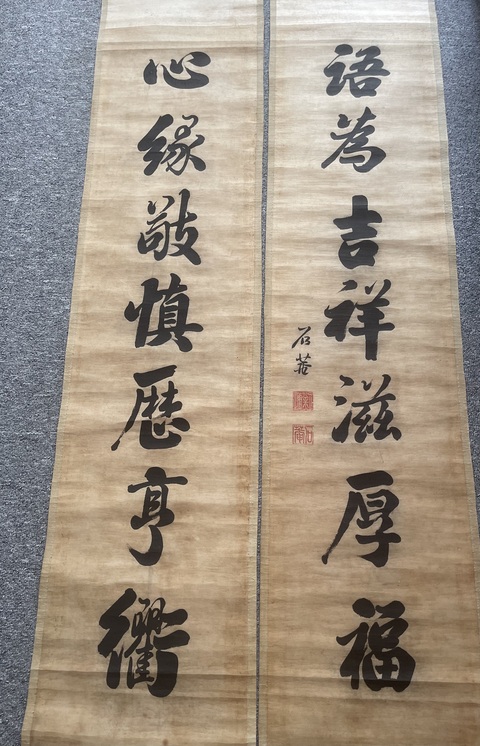 語為吉祥滋厚福
石菴
心緣敬慎歷亨衢